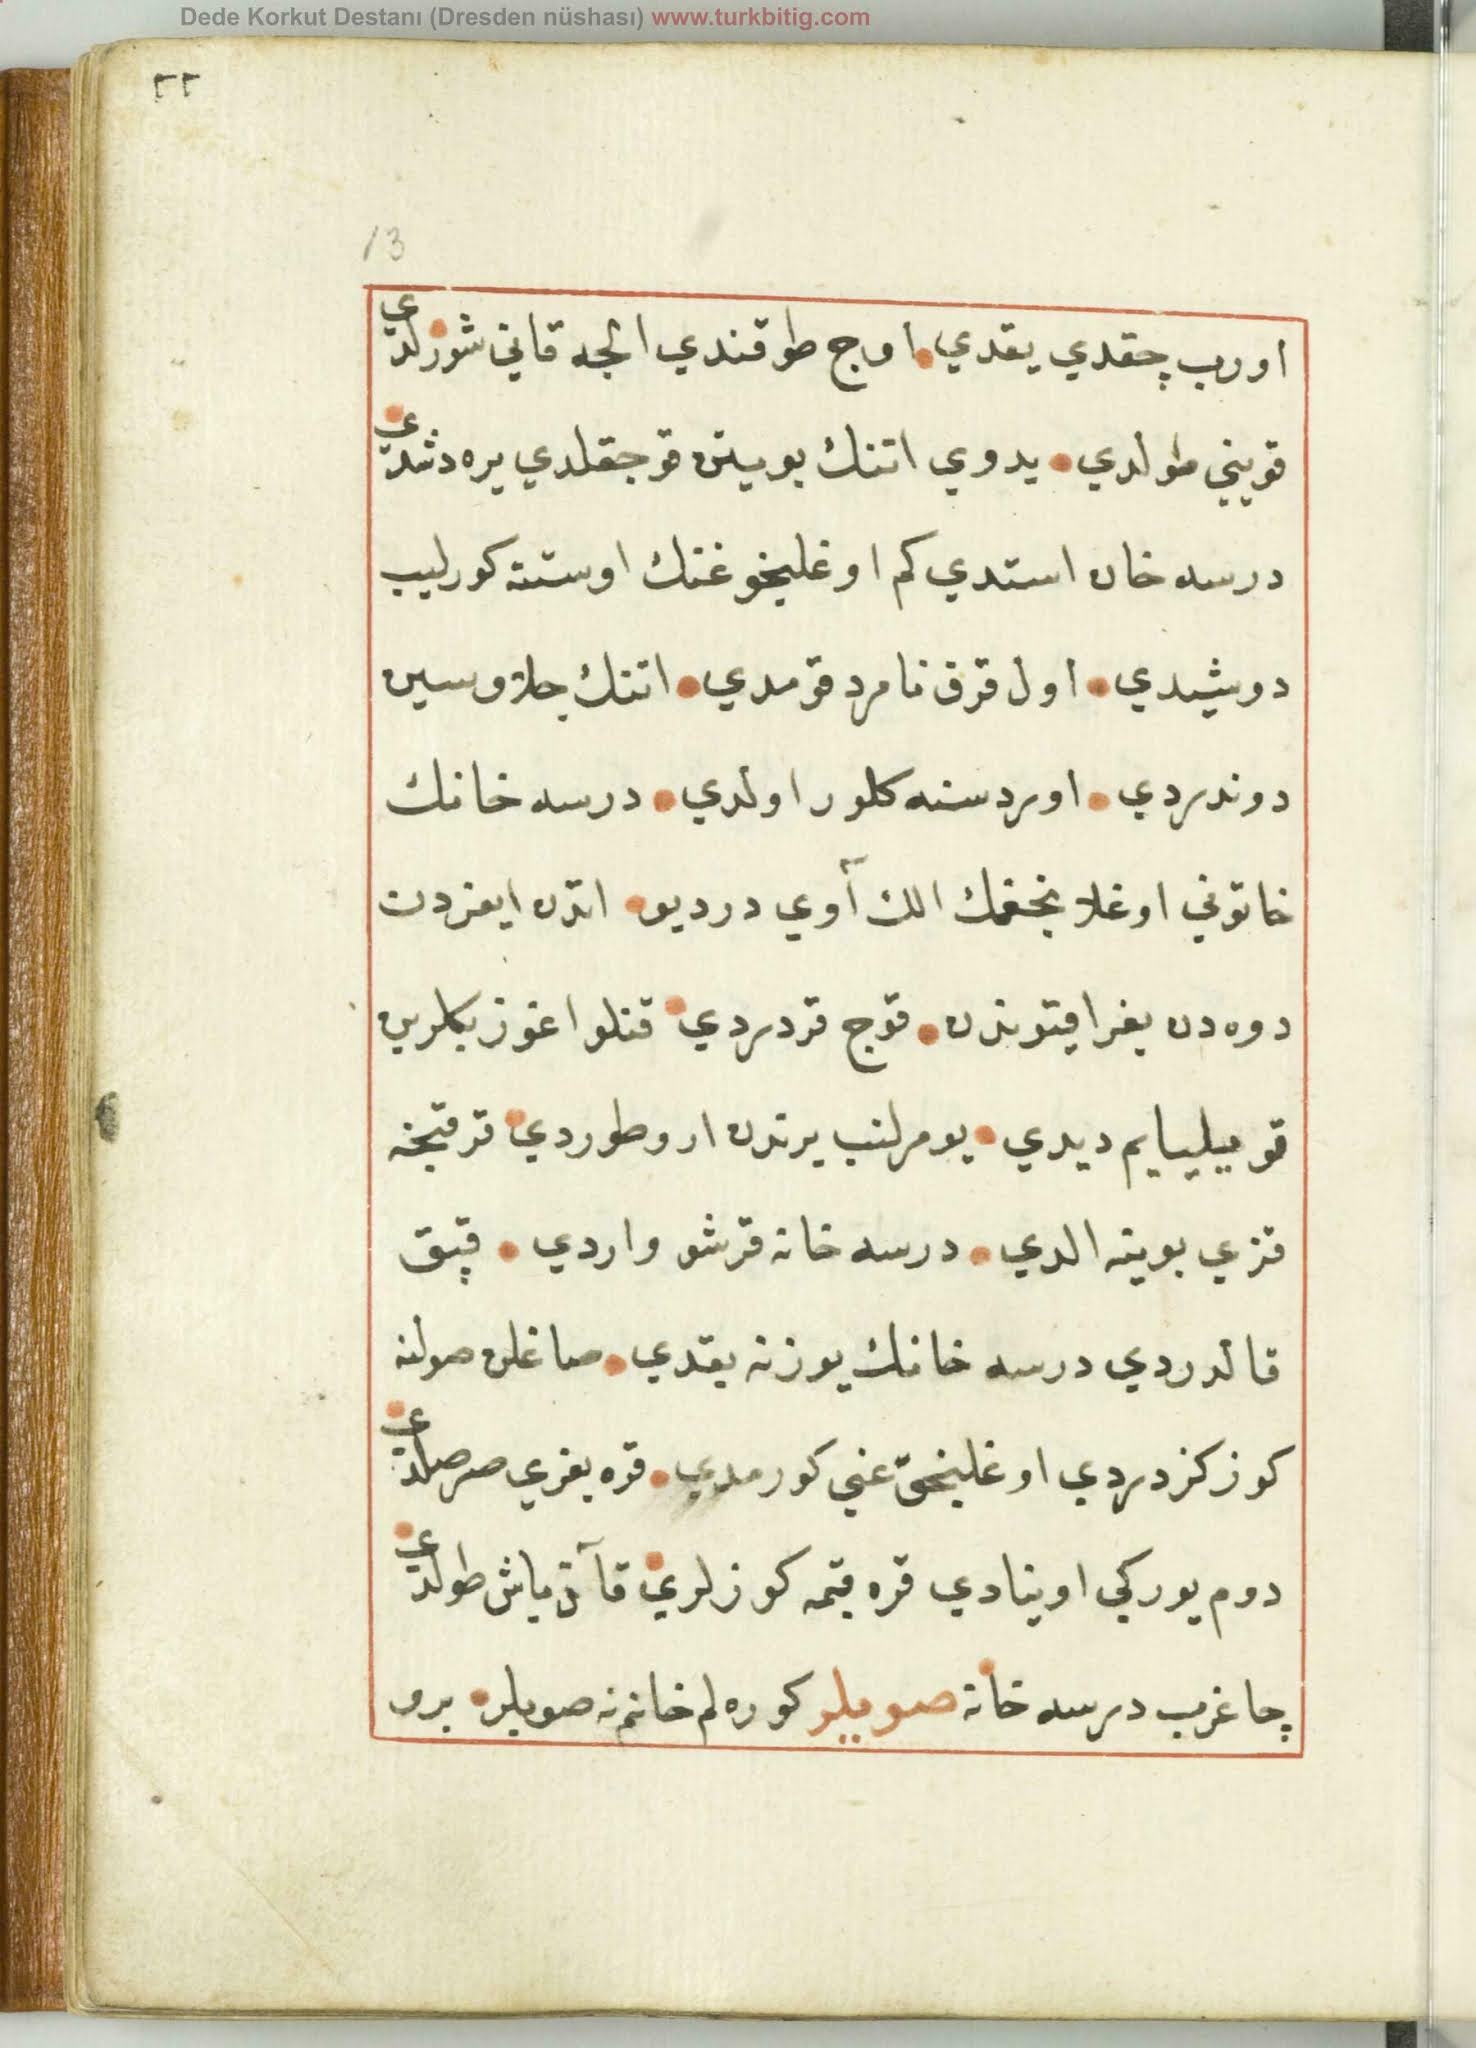 Dede Korkut Destanı (Dresden nüshası) www.turkbitig.com
٢٢
13
اورب چقدي يقدي اوج طوقندي الجه قاني شورلدي
قويني طولدي يدوي اتنك بوينن قوجقلدي يره دشدي
درسه خان استدي كم اوغلنجوغنك اوستنه كورليب
دوشيدي اول قرق نامرد قومدي اتنك جلاوسين
دوندردي اوردسنه كلور اولدي درسه خانك
خاتوني اوغلانجغمك الك آوي در ديو اتدن ايغردن
دوه دن بغرا قيوندن قوج قردردي قنلو اغوز بكلرين
قويليايم ديدي يومرلنب يرندن ارو طوردي قرقنجه
قزي بوينه الدي درسه خانه قرشو واردي قپق
قالدردي درسه خانك يوزنه بقدي صاغلن صولنه
كوز كزدردي اوغلنجوغني كورمدي قره بغري صرصلدي
دوم يوركي اوينادي قره قيمه كوزلري قان ياش طولدي
چاغرب درسه خانه صويلر كوره لم خانم نه صويلر برو